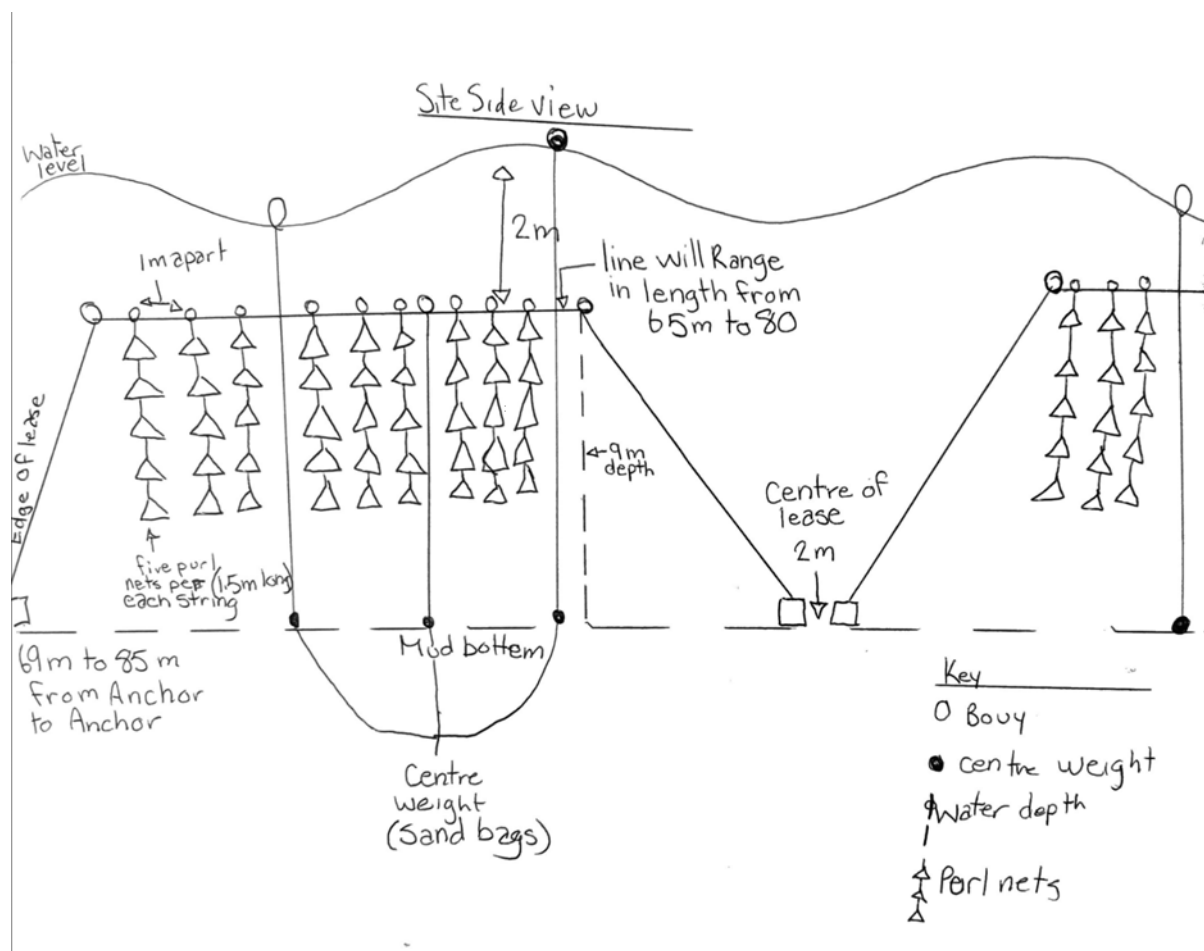 Site Side view
Water
level
1m apart
2m
line will Range
in length from
65m to 80
Edge of lease
9m
depth
Centre of
lease
2m
five purl
nets per (1.5m long)
each string
69m to 85m
from Anchor
to Anchor
Mud bottem
Centre
weight
(Sand bags)
Key
Bouy
centre weight
Water depth
Perl nets